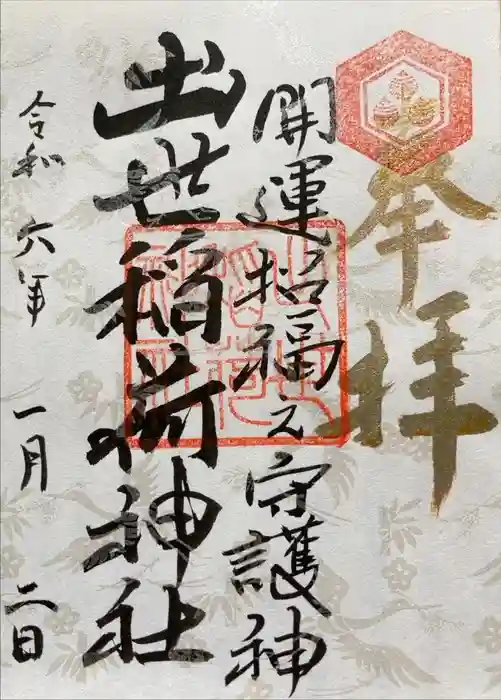 奉拝
開運招福之守護神
出世稲荷神社
令和六年一月二日
出世稲荷神社